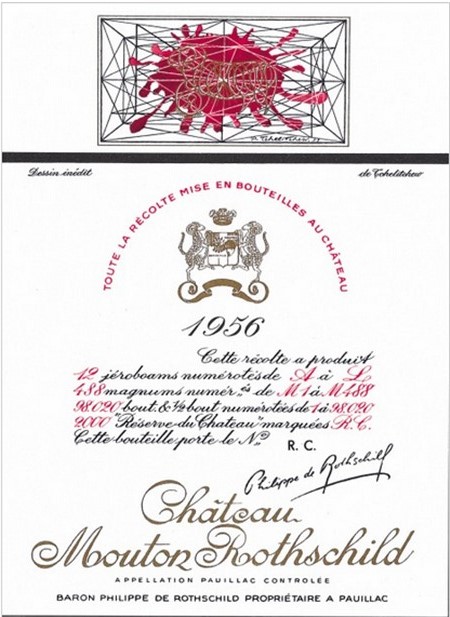 Dessin inédit
de Tchelitchew
TOUTE LA RÉCOLTE MISE EN BOUTEILLES AU CHÂTEAU
1956
Cette récolte a produit
12 jéroboams numérotés de A à L
488 magnums numérotés de M1 à M488
98.020 bout. & ½ bout numérotées de 1 à 98.020
2000 "Réserve du Chateau" marquées R.C.
Cette bouteille porte le Nº R. C.
Philippe de Rothschild
Château
Mouton Rothschild
APPELLATION PAUILLAC CONTROLÉE
BARON PHILIPPE DE ROTHSCHILD PROPRIÉTAIRE A PAUILLAC